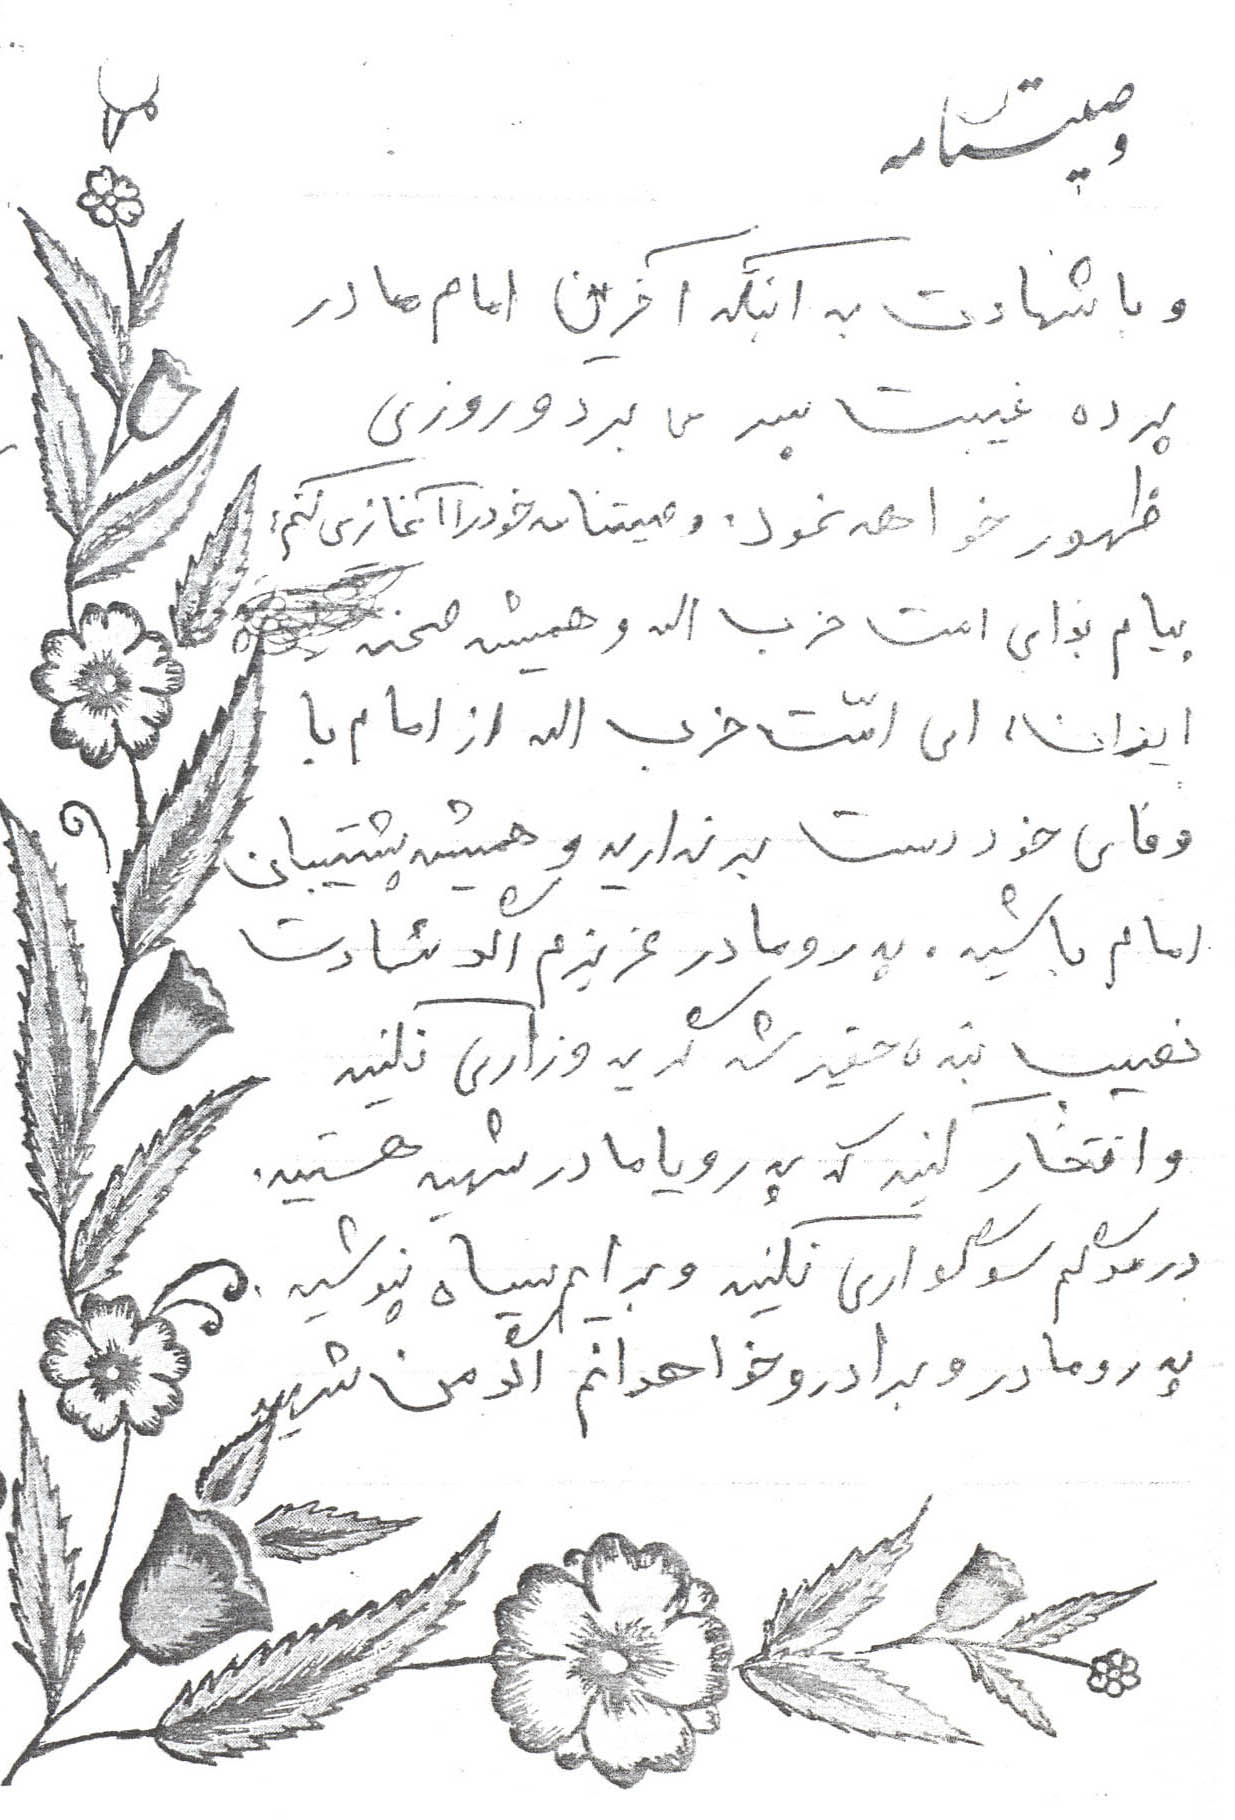 وصیتنامه
و با شهادت به اینکه آخرین امام ما در
پرده غیبت بسر می برد و روزی
ظهور خواهد نمود. وصیتنامه خود را آغاز می کنم:
پیام برای امت حزب اله و همیشه صحنه
ایران، ای امّت حزب اله از امام با
وفای خود دست برندارید و همیشه پشتیبان
امام باشید. پدر و مادر عزیزم اگر شهادت
نصیب بنده حقیر شد گریه و زاری نکنید
و افتخار کنید که پدر و یا مادر شهید هستید.
در مرگم سوگواری نکنید و برایم سیاه نپوشید.
پدر و مادر و برادر و خواهرانم اگر من شهید